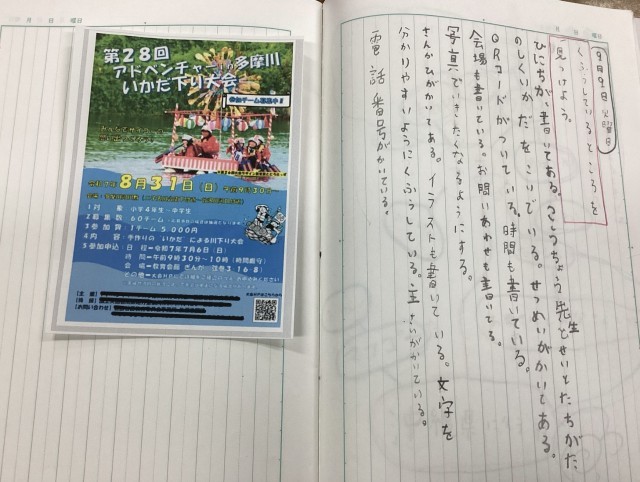 月 日 曜日
第28回
アドベンチャーin多摩川
いかだ下り大会
参加チーム募集中！
令和7年 8月31日（日）午前9時30分
1 対　象 小学4年生～中学生
2 募集数 60チーム
3 参加費 1チーム 5,000円
4 内　容 手作りの“いかだ”による川下り大会
5 参加申込 日 程－令和7年7月6日（日）
時 間－午前9時30分～10時（時間厳守）
【主 催】
【お問い合わせ】
月 日 曜日
9月9日 火曜日
くふうしているところを
見つけよう。
ひにちが、書いてある。こうちょう先生とせいとたちがた
のしくいかだをこいでいる。せつめいがかいてある。
QRコードがついている。時間も書いている。
会場も書いている。お問いあわせも書いてる。
写真でいきたくなるようにする。
さんかひがかいてある。イラストも書いている。文字を
分かりやすいようにくふうしている。主さいがかいている。
電話番号がかいている。